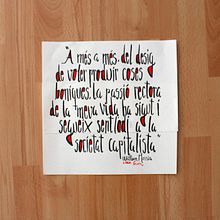 "A més a més del desig
de voler produir coses
boniques, la passió rectora
de la meva vida ha sigut i
segueix sent l'odi a la
societat capitalista"
William Morris